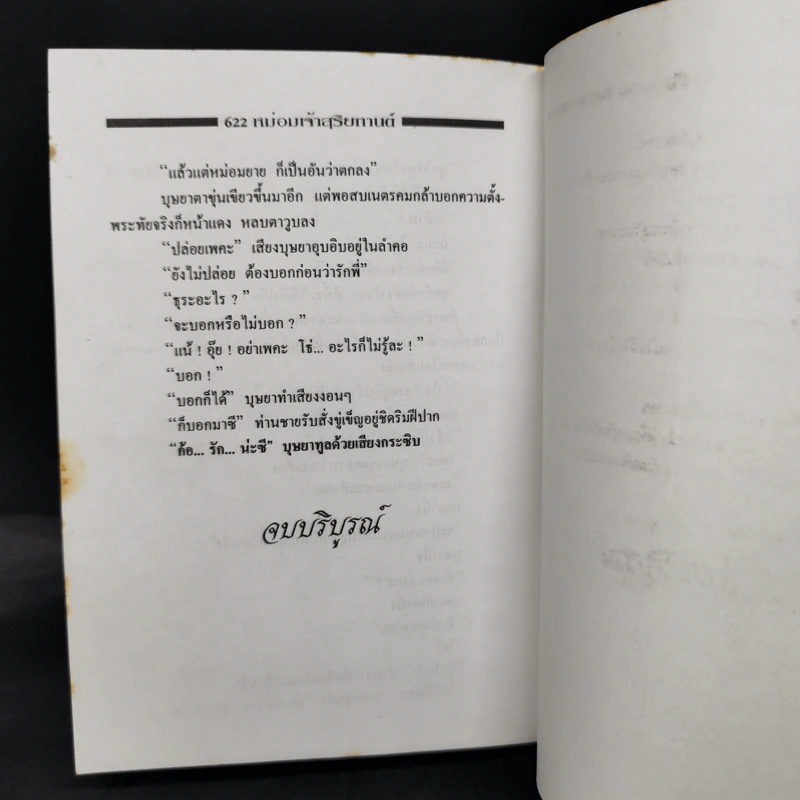 622 หม่อมเจ้าสุริยกานต์
“แล้วแต่หม่อมยาย ก็เป็นอันว่าตกลง”
บุษยาตาขุ่นเขียวขึ้นมาอีก แต่พอสบเนตรคมกล้าบอกความตั้ง-
พระทัยจริงก็หน้าแดง หลบตาวูบลง
“ปล่อยเพคะ” เสียงบุษยาอุบอิบอยู่ในลำคอ
“ยังไม่ปล่อย ต้องบอกก่อนว่ารักพี่”
“ธุระอะไร ?”
“จะบอกหรือไม่บอก ?”
“แน้ ! อุ๊ย ! อย่าเพคะ โธ่... อะไรก็ไม่รู้ละ !”
“บอก !”
“บอกก็ได้” บุษยาทำเสียงงอนๆ
“ก็บอกมาซี” ท่านชายรับสั่งขู่เข็ญอยู่ชิดริมฝีปาก
“ก้อ... รัก... น่ะซี” บุษยาทูลด้วยเสียงกระซิบ
จบบริบูรณ์